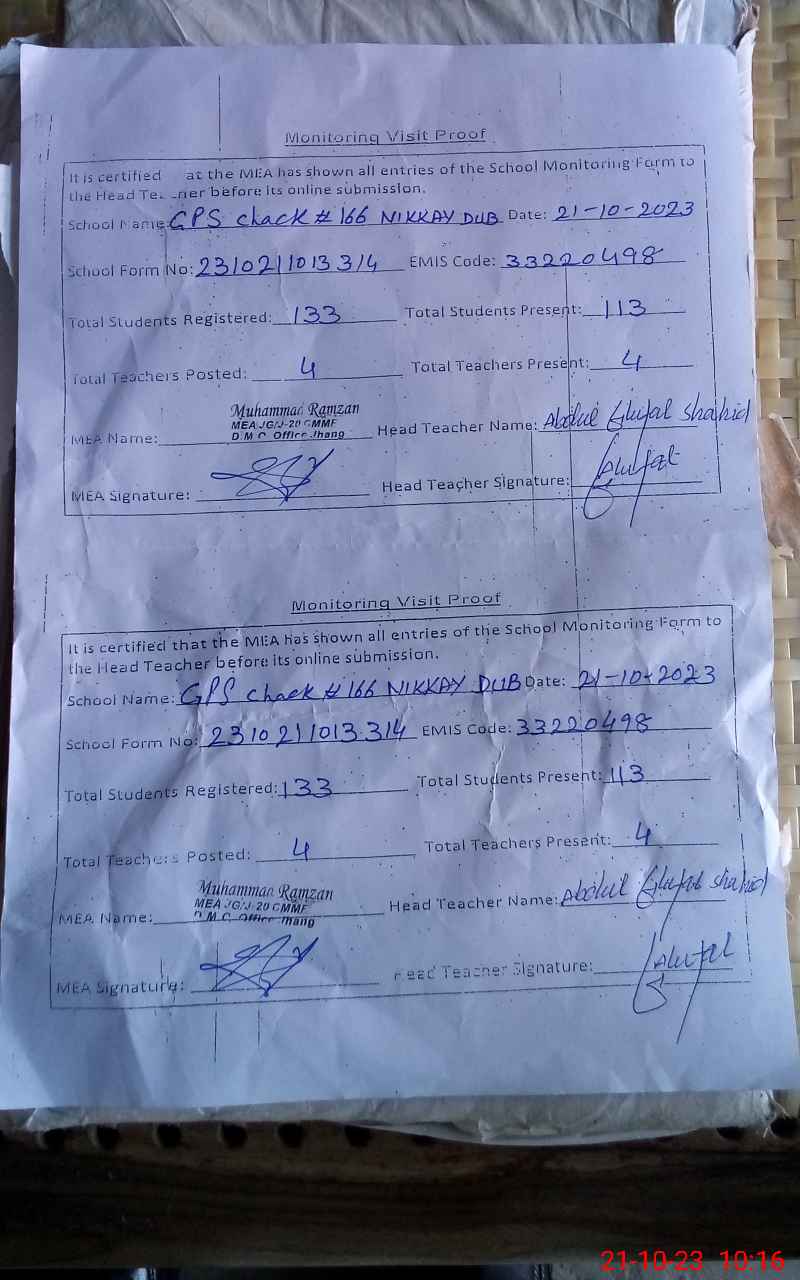 Monitoring Visit Proof
It is certified at the MEA has shown all entries of the School Monitoring Form to
the Head Te ner before its online submission.
School Name GPS chack # 166 NIKKAY DUB Date: 21-10-2023
School Form No: 2310211013314 EMIS Code: 33220498
Total Students Registered: 133 Total Students Present: 113
Total Teachers Posted: 4 Total Teachers Present: 4
Muhammad Ramzan
MEA JG/J-20 CMMF
D.M.C. Office Jhang
MEA Name: Head Teacher Name: Abdul Shahid
MEA Signature: Head Teacher Signature:
Monitoring Visit Proof
It is certified that the MEA has shown all entries of the School Monitoring Form to
the Head Teacher before its online submission.
School Name: GPS chack # 166 NIKKAY DUB Date: 21-10-2023
School Form No: 2310211013314 EMIS Code: 33220498
Total Students Registered: 133 Total Students Present: 113
Total Teachers Posted: 4 Total Teachers Present: 4
Muhammad Ramzan
MEA JG/J-20 CMMF
D.M.C. Office Jhang
MEA Name: Head Teacher Name: Abdul Shahid
MEA Signature: Head Teacher Signature:
21-10-23 10:16